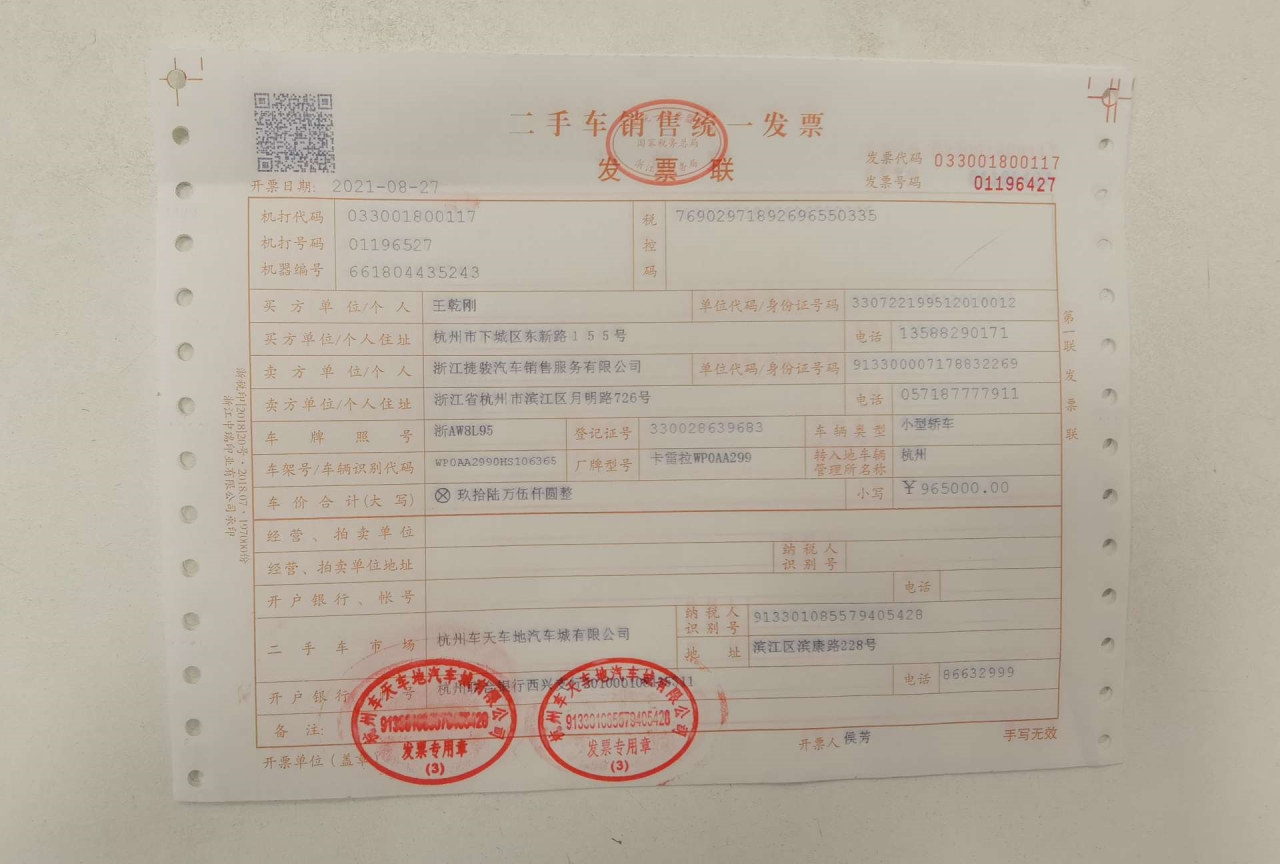 二手车销售统一发票
国家税务总局
发票联
发票代码 033001800117
发票号码 01196427
开票日期: 2021-08-27
机打代码 033001800117
机打号码 01196527
机器编号 661804435243
税控码 76902971892696550335
买方单位/个人 王乾刚 单位代码/身份证号码 330722199512010012
买方单位/个人住址 杭州市下城区东新路155号 电话 13588290171
卖方单位/个人 浙江捷骏汽车销售服务有限公司 单位代码/身份证号码 913300007178832269
卖方单位/个人住址 浙江省杭州市滨江区月明路726号 电话 057187777911
车牌照号 浙AW8L95 登记证号 330028639683 车辆类型 小型轿车
车架号/车辆识别代码 WP0AA2990HS106365 厂牌型号 卡雷拉WP0AA299 转入地车辆管理所名称 杭州
车价合计(大写) ⊗ 玖拾陆万伍仟圆整 小写 ￥965000.00
经营、拍卖单位
经营、拍卖单位地址 纳税人识别号
开户银行、帐号 电话
二手车市场 杭州车天车地汽车城有限公司 纳税人识别号 913301085579405428
地址 滨江区滨康路228号
开户银行 号 杭州联合银行西兴支行 电话 86632999
备注:
开票单位(盖章) 开票人 侯芳 手写无效
杭州车天车地汽车城有限公司
发票专用章
(3)
杭州车天车地汽车城有限公司
913301085579405428
发票专用章
(3)
第一联 发票联